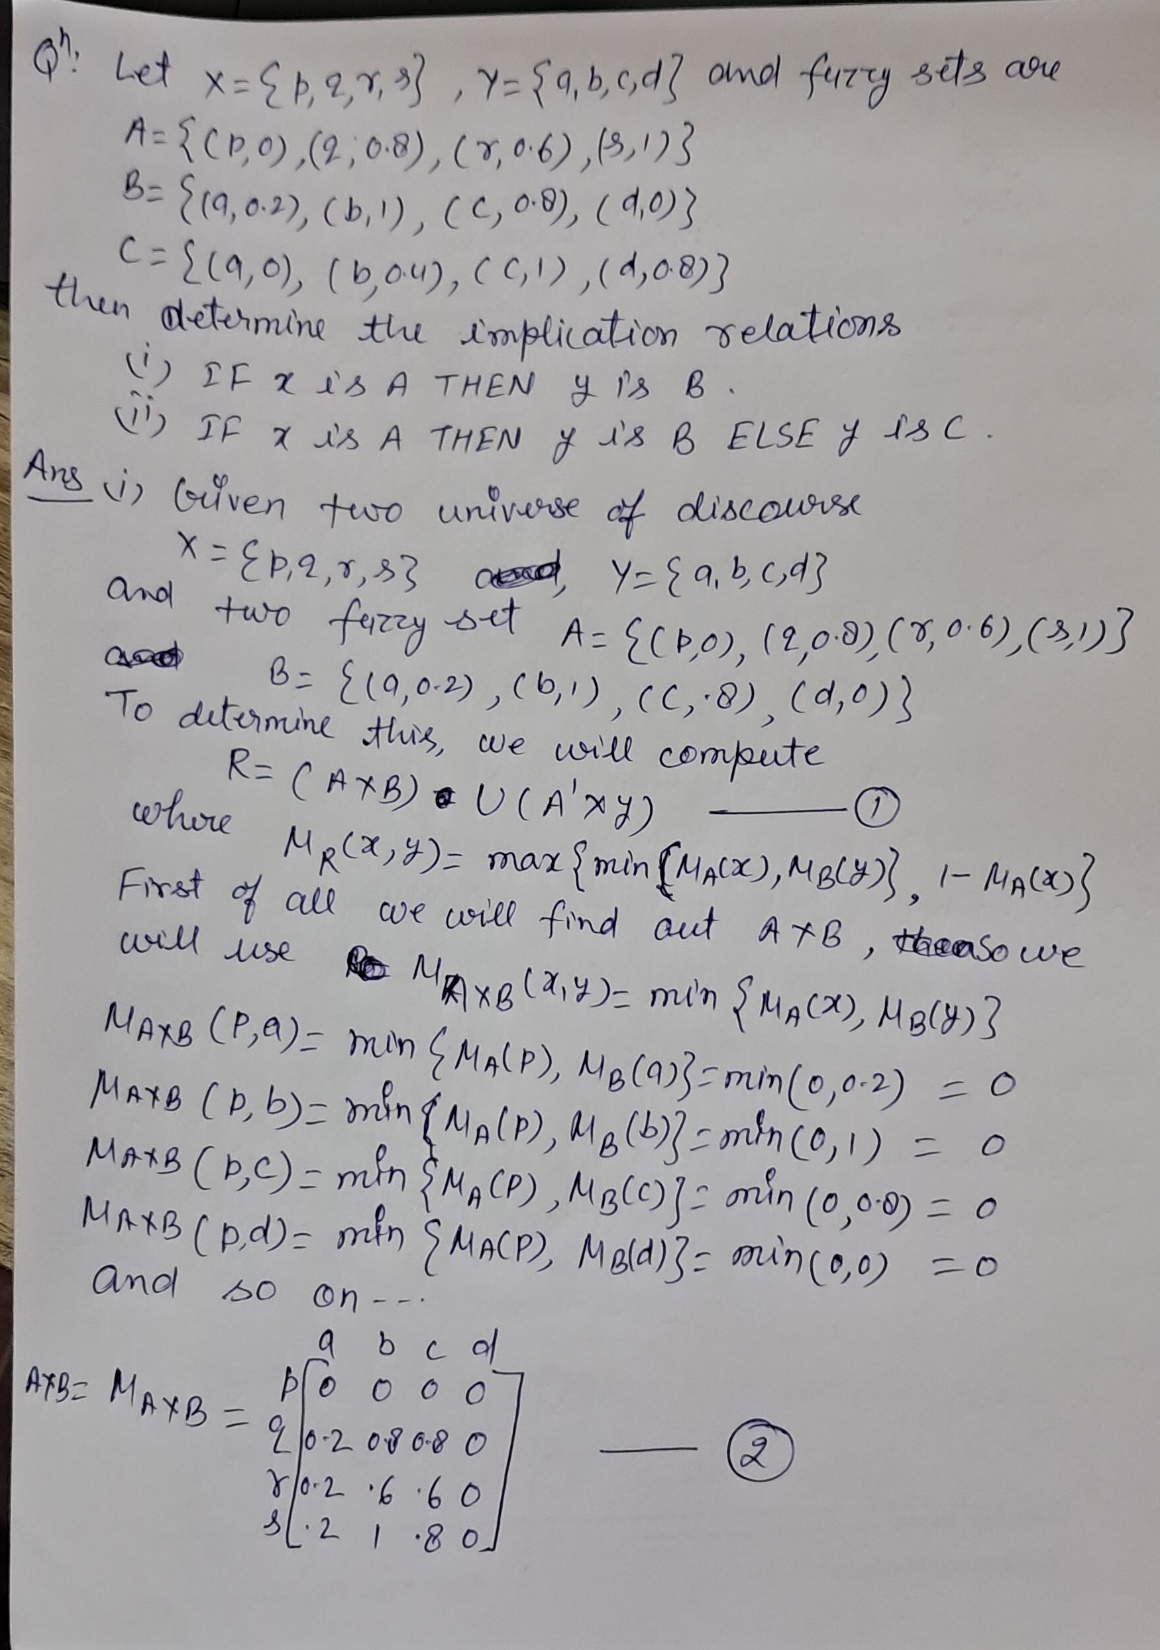 Qn: Let X={p,q,r,s}, Y={a,b,c,d} and fuzzy sets are
A={(p,0),(q,0.8),(r,0.6),(s,1)}
B={(a,0.2),(b,1),(c,0.8),(d,0)}
C={(a,0),(b,0.4),(c,1),(d,0.8)}
then determine the implication relations
(i) IF x is A THEN y is B.
(ii) IF x is A THEN y is B ELSE y is C.
Ans (i) Given two universe of discourse
X={p,q,r,s}, Y={a,b,c,d}
and two fuzzy set A={(p,0),(q,0.8),(r,0.6),(s,1)}
B={(a,0.2),(b,1),(c,.8),(d,0)}
To determine this, we will compute
R=(A×B)∪(A'×y) —— ①
where M_R(x,y)=max{min{M_A(x),M_B(y)}, 1-M_A(x)}
First of all we will find out A×B, so we
will use M_A×B(x,y)=min{M_A(x),M_B(y)}
M_A×B(p,a)=min{M_A(p),M_B(a)}=min(0,0.2)=0
M_A×B(p,b)=min{M_A(p),M_B(b)}=min(0,1)=0
M_A×B(p,c)=min{M_A(p),M_B(c)}=min(0,0.8)=0
M_A×B(p,d)=min{M_A(p),M_B(d)}=min(0,0)=0
and so on---
a b c d
A×B=M_A×B= p[0 0 0 0]
q[0.2 0.8 0.8 0] —— ②
r[0.2 .6 .6 0]
s[.2 1 .8 0]